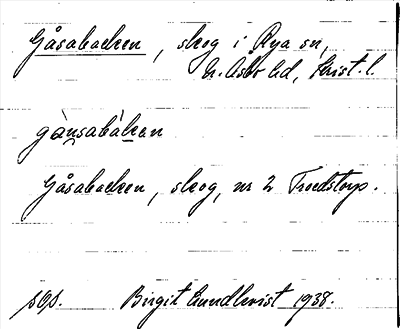 Gåsabacken, skog i Rya sn,
N. Åsbo hd, Krist. l.
gànsabàkan
Gåsabacken, skog, nr 2 Troedstorp.
sgs. Birgit Lundkvist 1938.